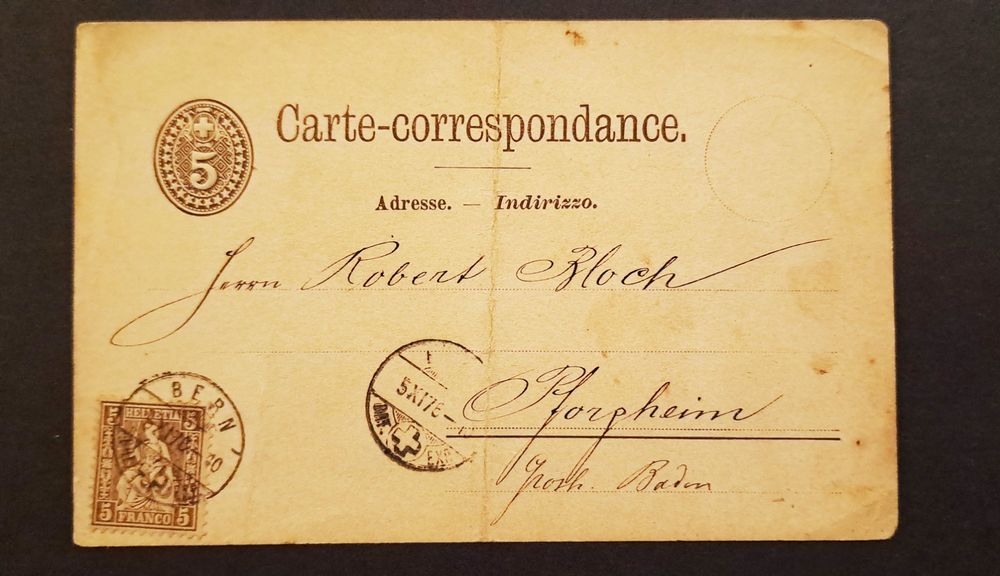 5
Carte-correspondance.
Adresse. — Indirizzo.
Herrn Robert Bloch
Pforzheim
Grosh. Baden
5 XI 76
EXP
BERN
5 HELVETIA 5
5 FRANCO 5